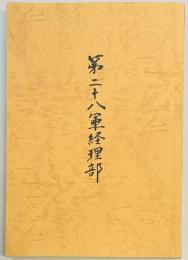 第二十八軍経理部